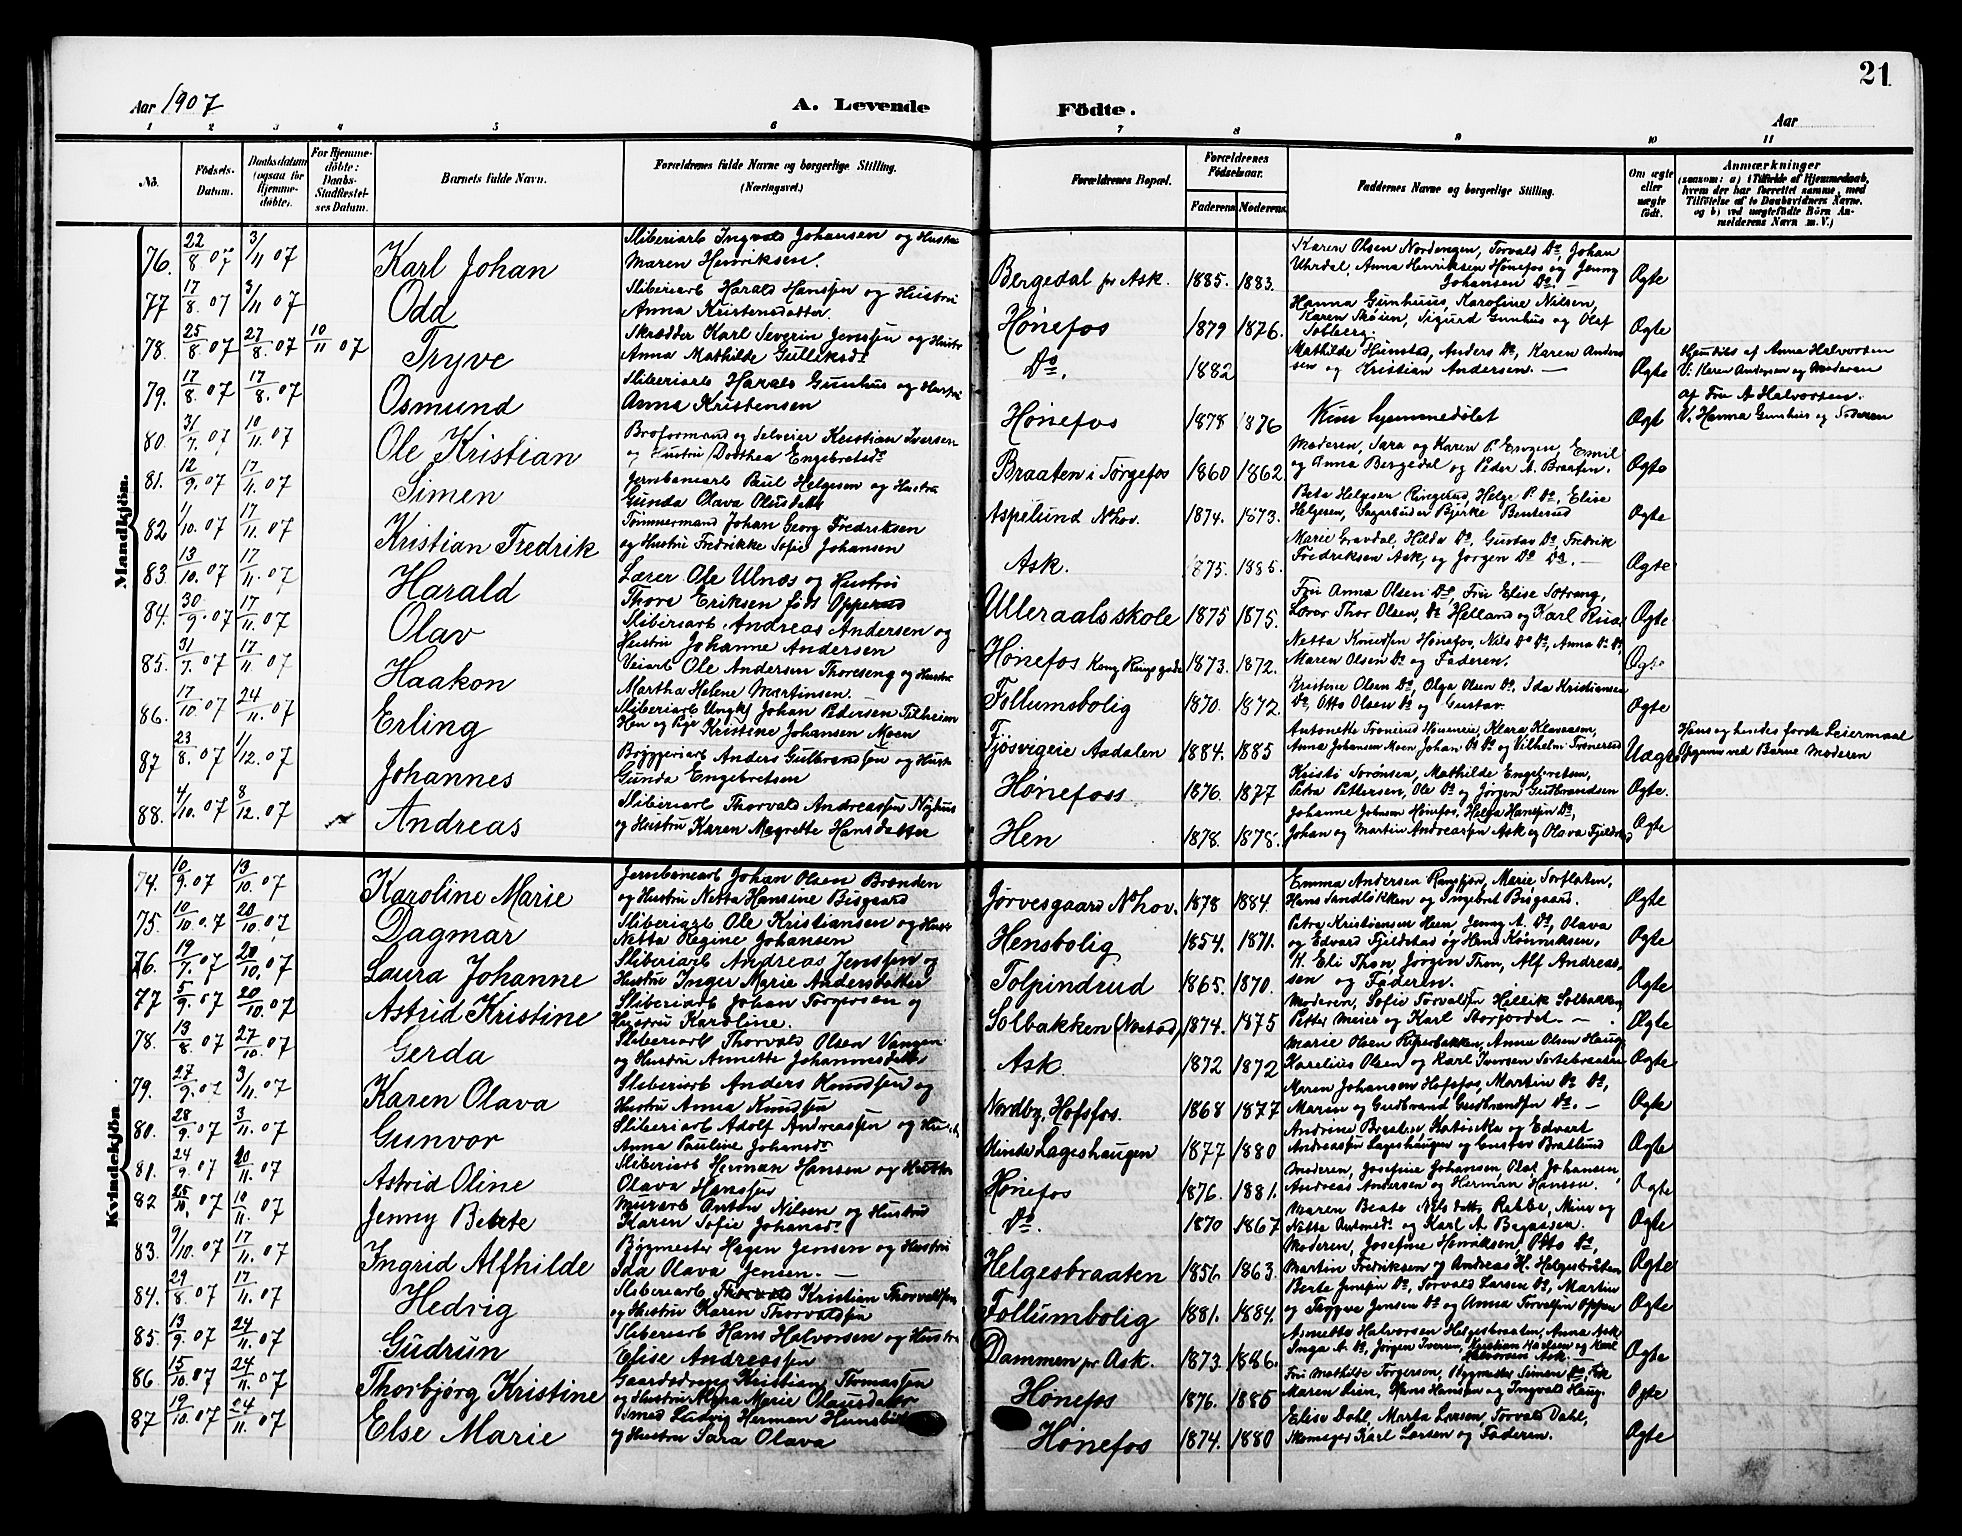 21
Aar 1907 A. Levende Födte. Aar
1 2 3 4 5 6 7 8 9 10 11
No. Födsels-Datum. Daabsdatum (ogsaa for Hjemme-döbte). For Hjemme-döbte: Daabs-Stadfæstel-ses Datum. Barnets fulde Navn. Forældrenes fulde Navne og borgerlige Stilling. (Næringsvei.) Forældrenes Bopæl. Forældrenes Födselsaar. Faderens Moderens Faddernes Navne og borgerlige Stilling. Om ægte eller uægte födt. Anmærkninger (saasom: a) i Tilfælde af Hjemmedaab, hvem der har forrettet samme, med Tilföielse af to Daabsvidners Navne. og b) ved uægtefödte Börn An-melderens Navn m. V.)
Mandkjön.
76. 22/8 07 3/11 07 Karl Johan Sliberiarb Ingvald Johansen og Hustru Maren Henriksen. Bergedal pr Ask. 1885. 1883. Karen Olsen Nordengen, Torvald Do, Johan Uhrdal, Anna Henriksen Hønefos og Jenny Johansen Do. Ægte
77 17/8 07 3/11 07 Odd Sliberiarb Harald Hanssen og Hustru Anna Kristensdatter. Hønefos 1879 1876. Hanna Gunhuus, Karoline Nilsen, Karen Skøien, Sigurd Gunhus og Olaf Solberg. Ægte
78. 25/8 07 27/8 07 10/11 07 Tryve Skrædder Karl Severin Jenssen og Hustru Anna Mathilde Gulliksdr Do. 1882 Mathilde Hunstad, Anders Do, Karen Andersen og Kristian Andersen. Ægte Hjdøbt af Anna Halvorsen V. Karen Andersen og Moderen
79. 17/8 07 17/8 07 Osmund Sliberiarb Harald Gunhus og Hustru Anna Kristensen Hønefos 1878 1876 Kun hjemmedøbt Ægt af Fru A Halvorsen. V. Hanna Gunhus og
80. 31/7 07 10/11 07 Ole Kristian Broformand og Selveier Kristian Iversen og Hustru Dorthea Engebretsdr Braaten i Sørgefos 1860 1862. Moderen, Sara og Karen P. Emil og Anna Bergedal og Peder A. Braaten. Ægte
81. 12/9 07 17/11 07 Simen Jernbanearb Paul Helgesen og Hustru Gunda Olava Olausdatt Aspelund Nhov. 1874. 1873. Beta Helgesen Ringerud, Helge P. Do, Elise Helgesen, Sagarbeider Bjerke Benterud Ægte
82 1/10 07 17/11 07 Kristian Fredrik Tømmermand Johan Georg Fredriksen og Hustru Fredrikke Sofie Johansen Ask. 1875. 1885. Marie Gravdal, Hilda Do, Gustav Do, Fredrik Fredriksen Ask, og Jørgen Do Do. Ægte
83. 13/10 07 17/11 07 Harald Lærer Ole Ulnæs og Hustru Thora Eriksen født Opperud Ulleraalsskole 1875 1875. Fru Anna Olsen Do, Fru Elise Setrang, Lærer Thor Olsen, Do Helland og Karl Ægte
84. 30/9 07 17/11 07 Olav Sliberiarb. Andreas Andersen og Hustru Johanne Andersen Hønefos Kong Rings gade 1873. 1872. Netta Knudsen Hønefos, Nils Do Do, Anna Do Do, Maren Olsen Do og Faderen. Ægte
85. 31/7 07 17/11 07 Haakon Veiarb Ole Andersen Thoreseng og Hustru Martha Helene Martinsen. Follumsbolig 1870. 1872. Kristene Olsen Do, Olga Olsen Do, Ida Kristiansen Do, Otto Olsen Do og Gustav. Ægte
86. 17/10 07 24/11 07 Erling Sliberiarb Ungk/ Johan Pedersen Tilheim Hen og Pige Kristine Johansen Moen Fjøsvigeie Aadalen 1884. 1885 Antonette Tronerud Hønseie, Klara Klavesen, Anna Johansen Moen Johan Do Do og Vilhelm Tronerud Uægte Hans og hendes første Leiermaal Opgaves ved Barne Moderen
87 23/8 07 1/12 07 Johannes Bryggeriarb Anders Gulbrandsen og Hustr Gunda Engebretsen Hønefoss 1876. 1877 Kristi Sørensen, Mathilde Engebretsen, Petra Pettersen, Ole Do og Jørgen Gudbrandsen Ægte.
88. 4/10 07 8/12 07 Andreas Sliberiarb Thorvald Andreassen Nyhus og Hustru Karen Magrette Hansdatter Hen 1878. 1878. Johanne Johnsen Hønefos, Helga Hansen Do, Johan og Martin Andreassen Ask og Olava Fjeldstad Ægte
Kvindekjön
74. 10/9 07 13/10 07 Karoline Marie Jernbanearb Johan Olsen Brænden og Hustru Netta Hansine Bisgaard Jørvesgaard Nhov. 1878 1884. Emma Andersen Marie Sørflaten, Hans Sandløkken og Ingebret Bisgaard. Ægte
75. 10/10 07 20/10 07 Dagmar Sliberiarb Ole Kristiansen og Hustr Netta Regine Johansen Hensbolig 1854. 1871. Petra Kristiansen Heen, Jenny A. Do, Olava og Edvard Fjeldstad og Hans Kønniksen. Ægte
76. 19/7 07 20/10 07 Laura Johanne Sliberiarb Andreas Jenssen og Hustru Inger Marie Andersdatter Tolpindrud 1865. 1870. K. Eli Thon, Jørgen Thon, Alf Andreassen og Faderen. Ægte
77 5/9 07 20/10 07 Astrid Kristine Sliberiarb Johan Torgersen og Hustru Karoline. Solbakken (Nøstad) 1874. 1875 Moderen, Sofie Torvaldsen Hellik Solbakken, Petter Meier og Karl Storjordet. Ægte
78. 13/8 07 27/10 07 Gerda Sliberiarb Thorvald Olsen Vangen og Hustru Annette Johannesdatt Ask 1872 1872 Marie Olsen Riperbakken, Anne Olsen Haug, Karelius Olsen og Karl Iversen Sortebraaten Ægte
79. 27/9 07 3/11 07 Karen Olava Sliberiarb Anders Knudssen og Hustru Anna Knudssen Nordby, Hofsfos. 1868 1877 Maren Johansen Hofsfos, Martin Do Do, Marin og Gudbrand Gudbrandsen Do. Ægte
80. 28/9 07 3/11 07 Gunvor Sliberiarb Adolf Andreassen og Hustr Anna Pauline Johansdr Minde Lageshaugen 1877 1880 Andrine Braaten, og Edvart Andreassen Lageshaugen og Gustav Bratlund Ægte
81. 24/9 07 10/11 07 Astrid Oline Sliberiarb Herman Hansen og Hustru Olava Hanssen Hønefos 1876. 1881. Moderen, Josefine Johansen, Olaf Johansen, Andreas Andersen og Herman Hanssen. Ægte
82 25/10 07 10/11 07 Jenny Beate Murarb Anton Nilsen og Hustru Karen Sofie Johansdr Do. 1870 1867 Maren Beate Nilsdatter, Mina og Netta Antonsdr og Karl A. Ægte
83. 9/10 07 17/11 07 Ingrid Alfhilde Bygmester Hagen Jensen og Hustru Ida Olava Jensen. Helgesbraaten 1856 1863. Moderen, Josefine Henriksen, Otto Do, Martin Fredriksen og Andreas H. Helgesbråten Ægte
84. 29/8 07 17/11 07 Hedvig Sliberiarb Kristian Thorvaldsen og Hustru Karen Thorvaldsen Follumbolig 1881. 1884. Berte Jensen Do, Torvald Larsen Do, Martin og Trygve Jensen Do og Anna Torvalsen Oppen Ægte
85. 13/9 07 24/11 07 Gudrun Sliberiarb Hans Halvorsen og Hustru Elise Andreassen Dammen pr Ask. 1873. 1886. Annette Halvorsen Helgesbraaten, Anna Ask, Inga A. Do, Jørgen Iversen, Kristian Madsen og Karl Halvorsen Ask Ægte
86. 15/10 07 24/11 07 Thorbjørg Kristine Gaardsdreng Kristian Thomassen og Hustru Marie Olausdatter Hønefos 1876. 1885 Fru Mathilde Torgersen, Bygmester Simen Maren Lein, Hans Hansen og Ingvald Haug. Ægte
87 19/10 07 24/11 07 Else Marie Smed Ludvig Herman og Hustru Sara Olava Hønefos 1874. 1880 Elise Dahl, Marta Larsen, Torvald Dahl, Skomager Karl Larsen og Faderen. Ægte